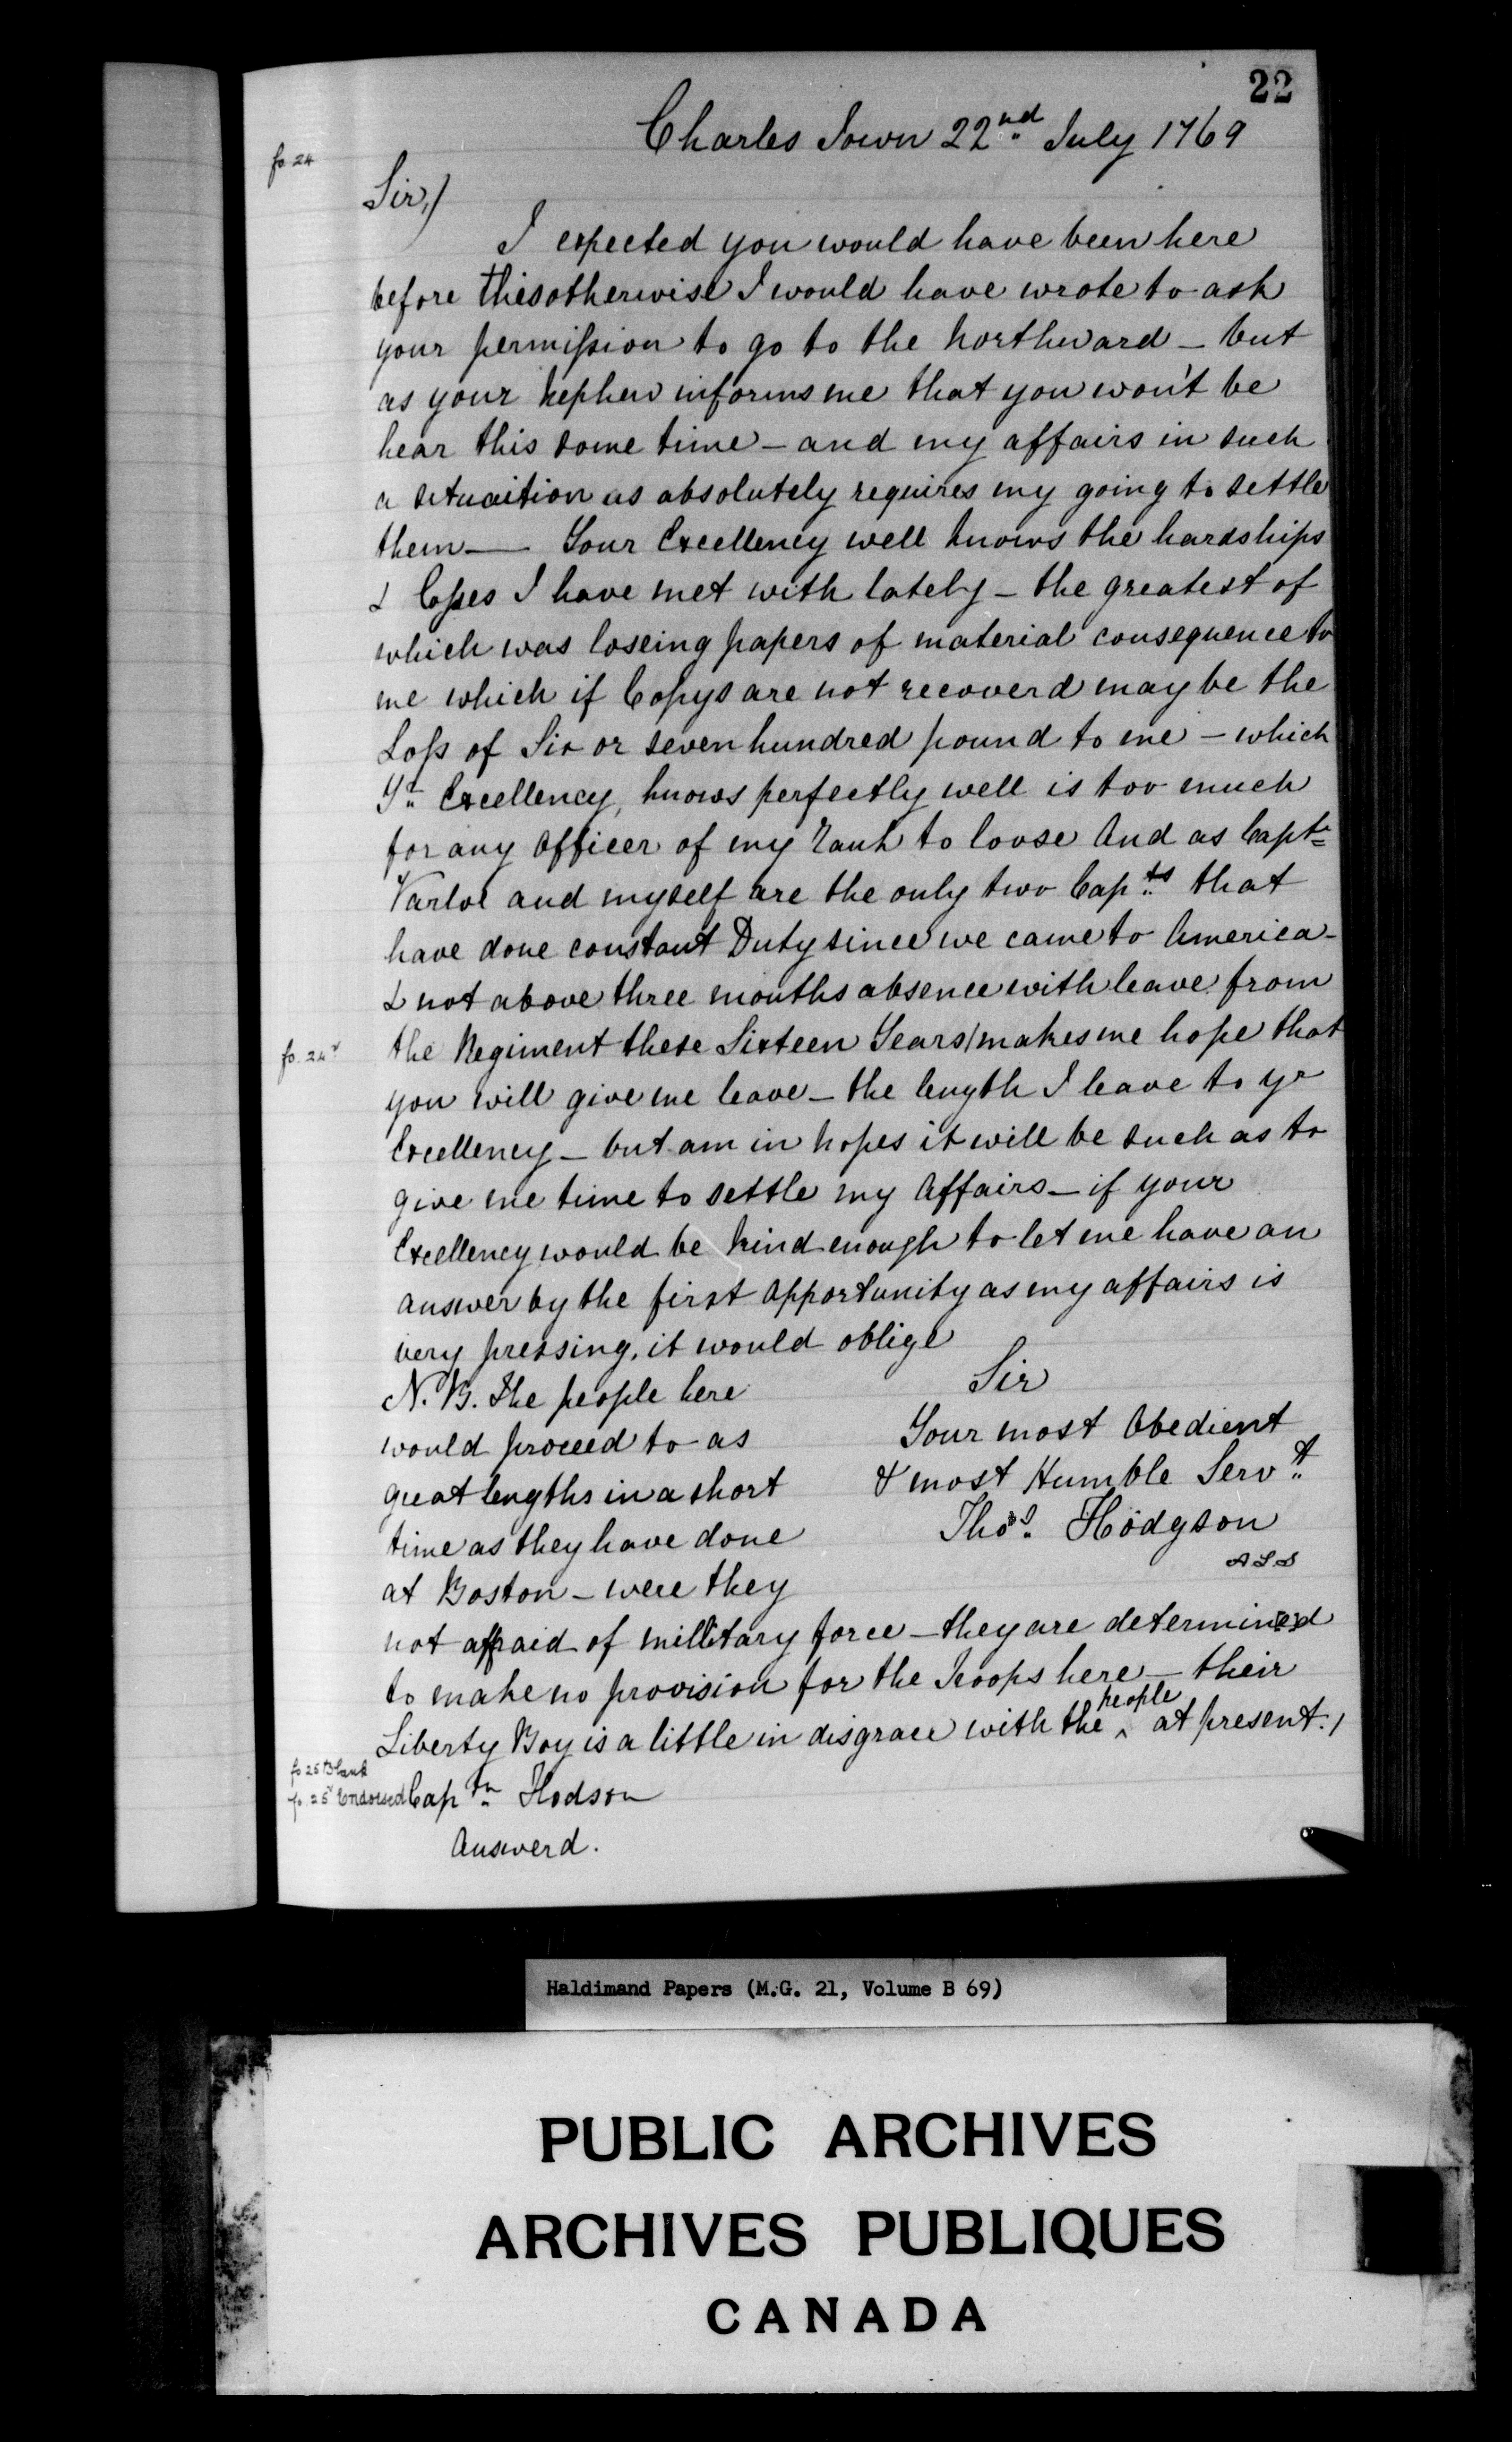 22
Charles Town 22nd July 1769
fo. 24
Sir,/
I expected you would have been here
before this otherwise I would have wrote to ask
your permission to go to the Northward – but
as your Nephew informs me that you won't be
hear this some time – and my affairs in such
a situaition as absolutely requires my going to settle
them — Your Excellency well knows the hardships
& Losses I have met with lately – the greatest of
which was loseing papers of material consequence to
me which if Copys are not recoverd may be the
Loss of Six or seven hundred pound to me – which
Yr Excellency, knows perfectly well is too much
for any Officer of my Rank to loose And as Capt
Varloe and myself are the only two Capts that
have done constant Duty since we came to America –
& not above three months absence with leave from
fo. 24v the Regiment these Sixteen Years/makes me hope that
you will give me leave – the length I leave to yr
Excellency – but am in hopes it will be such as to
give me time to settle my Affairs – if your
Excellency would be kind enough to let me have an
answer by the first Opportunity as my affairs is
very pressing, it would oblige
Sir
Your most Obedient
& most Humble Servt
Thos. Hodgson
ALS
N.B. The people here
would proceed to as
great lengths in a short
time as they have done
at Boston – were they
not affraid of millitary force – they are determin[e]d
to make no provision for the Troops here – their
Liberty Boy is a little in disgrace with the ^people at present./
fo 25 Blank
fo. 25v Endorsed Captn Hodson
Answerd.
Haldimand Papers (M.G. 21, Volume B 69)
PUBLIC ARCHIVES
ARCHIVES PUBLIQUES
CANADA